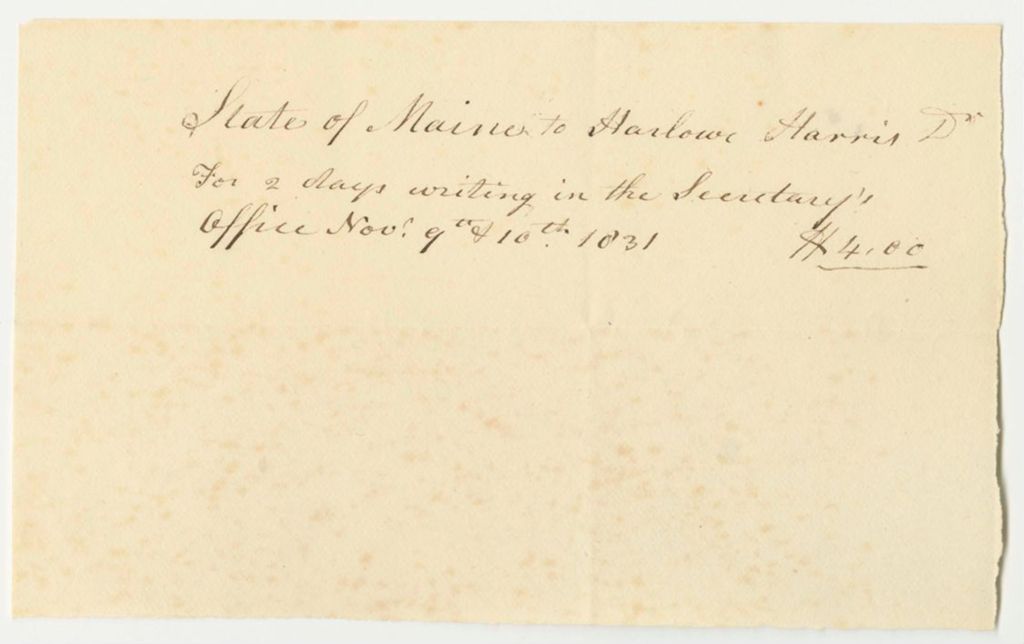 State of Maine to Harlowe Harris Dr
For 2 days writing in the Secretary's
Office Nov. 9th & 10th. 1831 $4.00